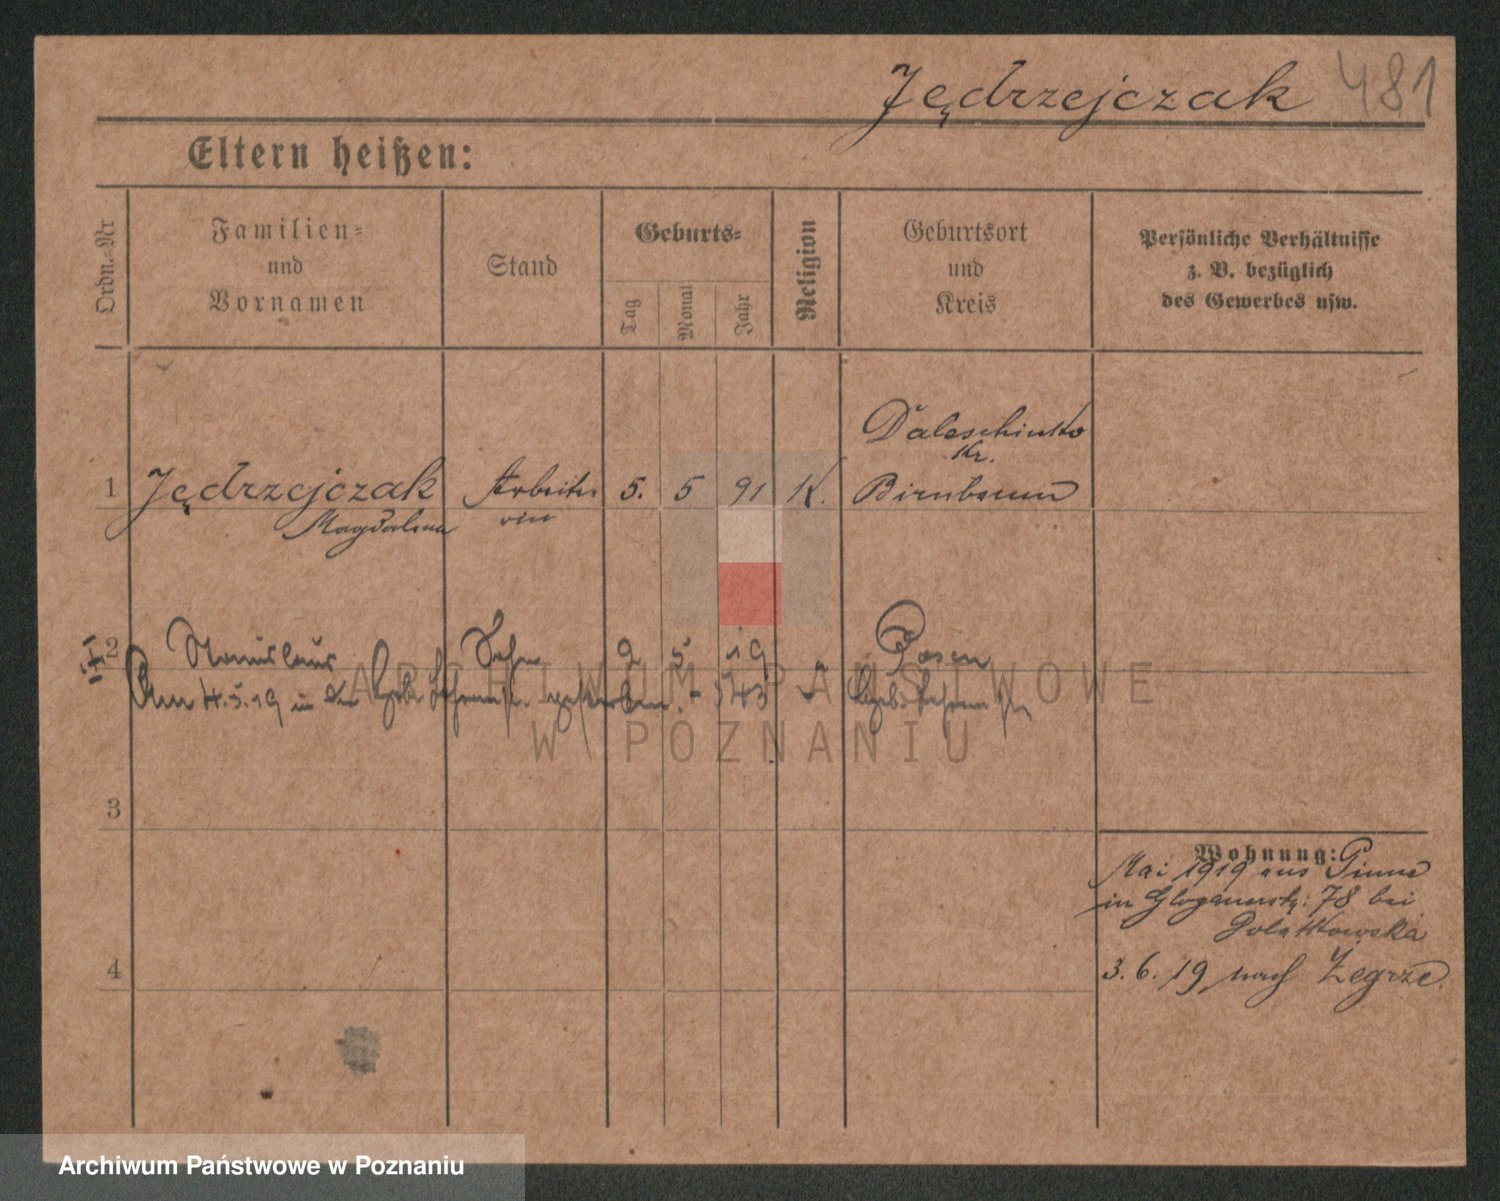 Jędrzejczak 481
Eltern heißen:
Ordn.-Nr
Familien-
und
Vornamen
Stand
Geburts-
Tag
Monat
Jahr
Religion
Geburtsort
und
Kreis
Persönliche Verhältnisse
z. B. bezüglich
des Gewerbes usw.
Daleschinko
Kr.
1 Jędrzejczak Arbeite- 5. 5 91 K. Birnbaum
Magdalena rin
2 Stanislaus Sohn 2 5 19 Posen
Am 4.5.19 in der gestorben. - 143
ARCHIWUM PAŃSTWOWE
W POZNANIU
3
Wohnung:
Mai 1919 aus Pinne
in Glogauerstr: 78 bei
4
3. 6. 19 nach Zegrze.
Archiwum Państwowe w Poznaniu